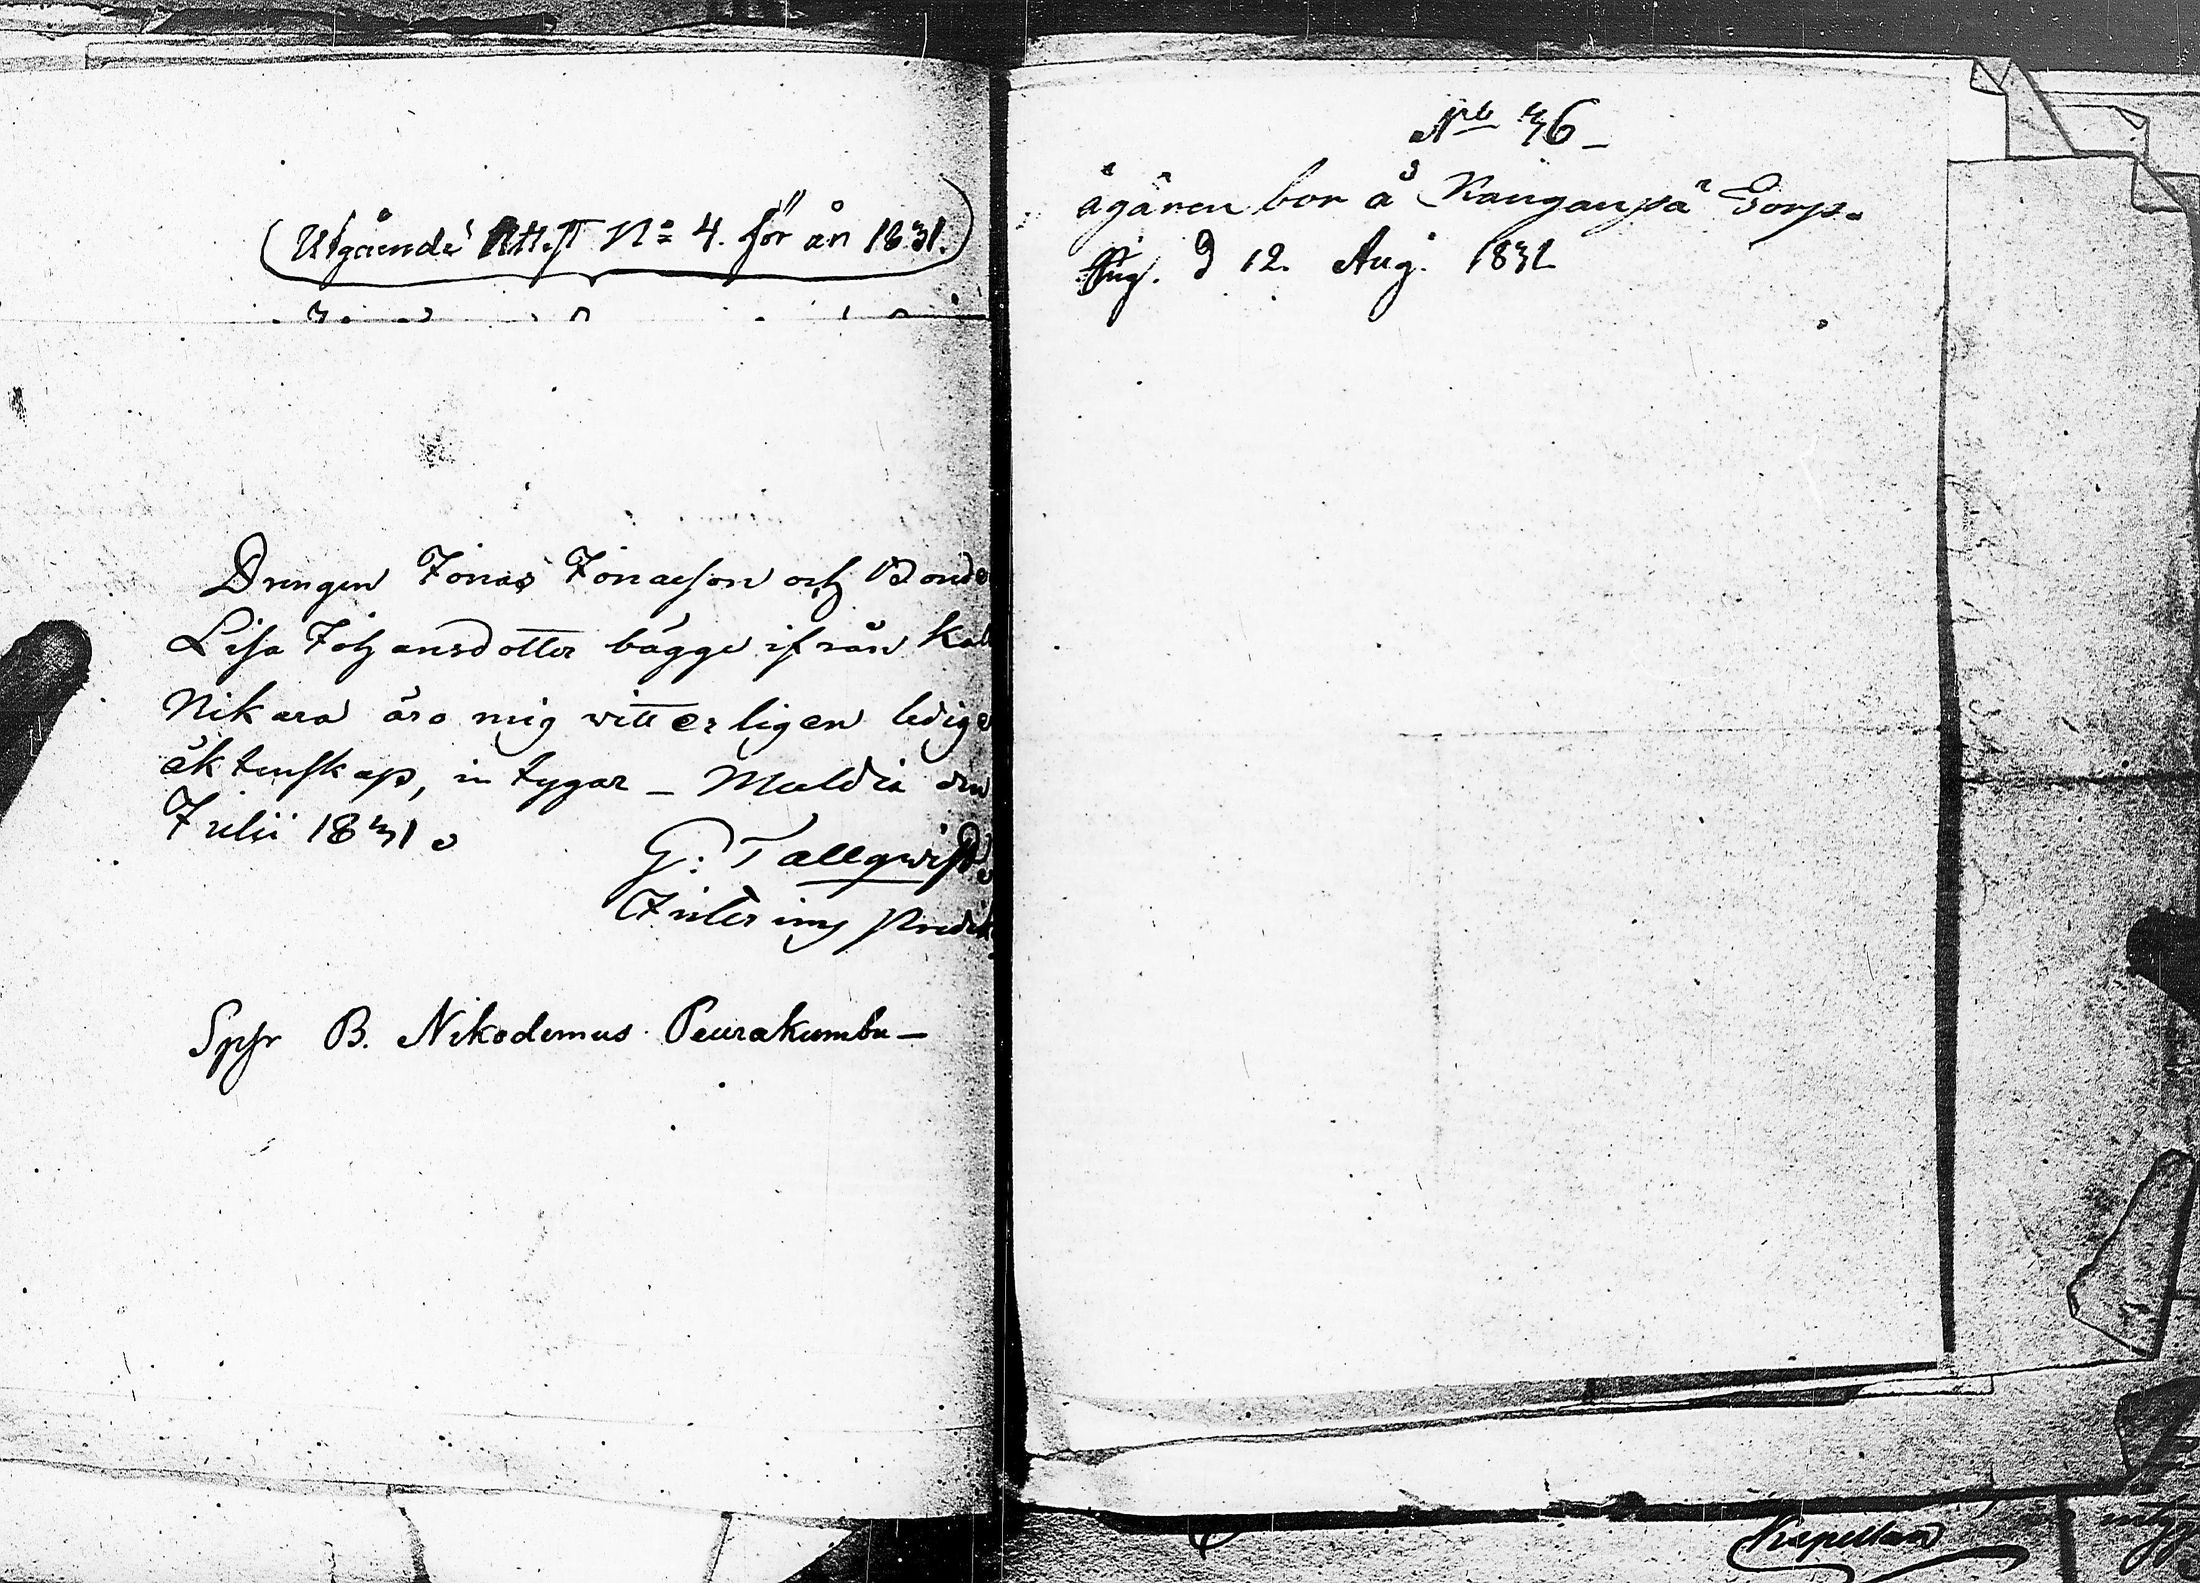 (Utgående Attest No 4. för år 1831.)
Drengen Jonas Jonasson och Bonde
Lisa Johansdotter bägge ifrån
Nikara äro mig witterligen lediga
äktenskap, intygar – Muldia den
Julii 1831.
G: Tallqwist.
Interims Predik
Spr B. Nikodemus Peurakumbu –
No 36 –
ägaren bor å Kangaspä Torp.
d 12. Aug. 1831
Kapellan